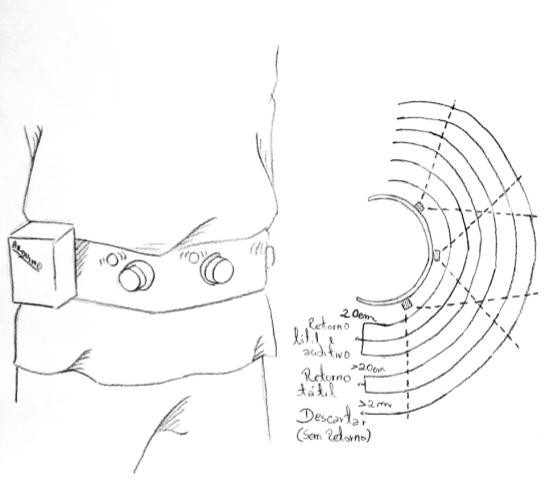 ARDUINO
20cm
Retorno
tátil e
auditivo
>20cm
Retorno
tátil
>2m
Descartar
(Sem Retorno)